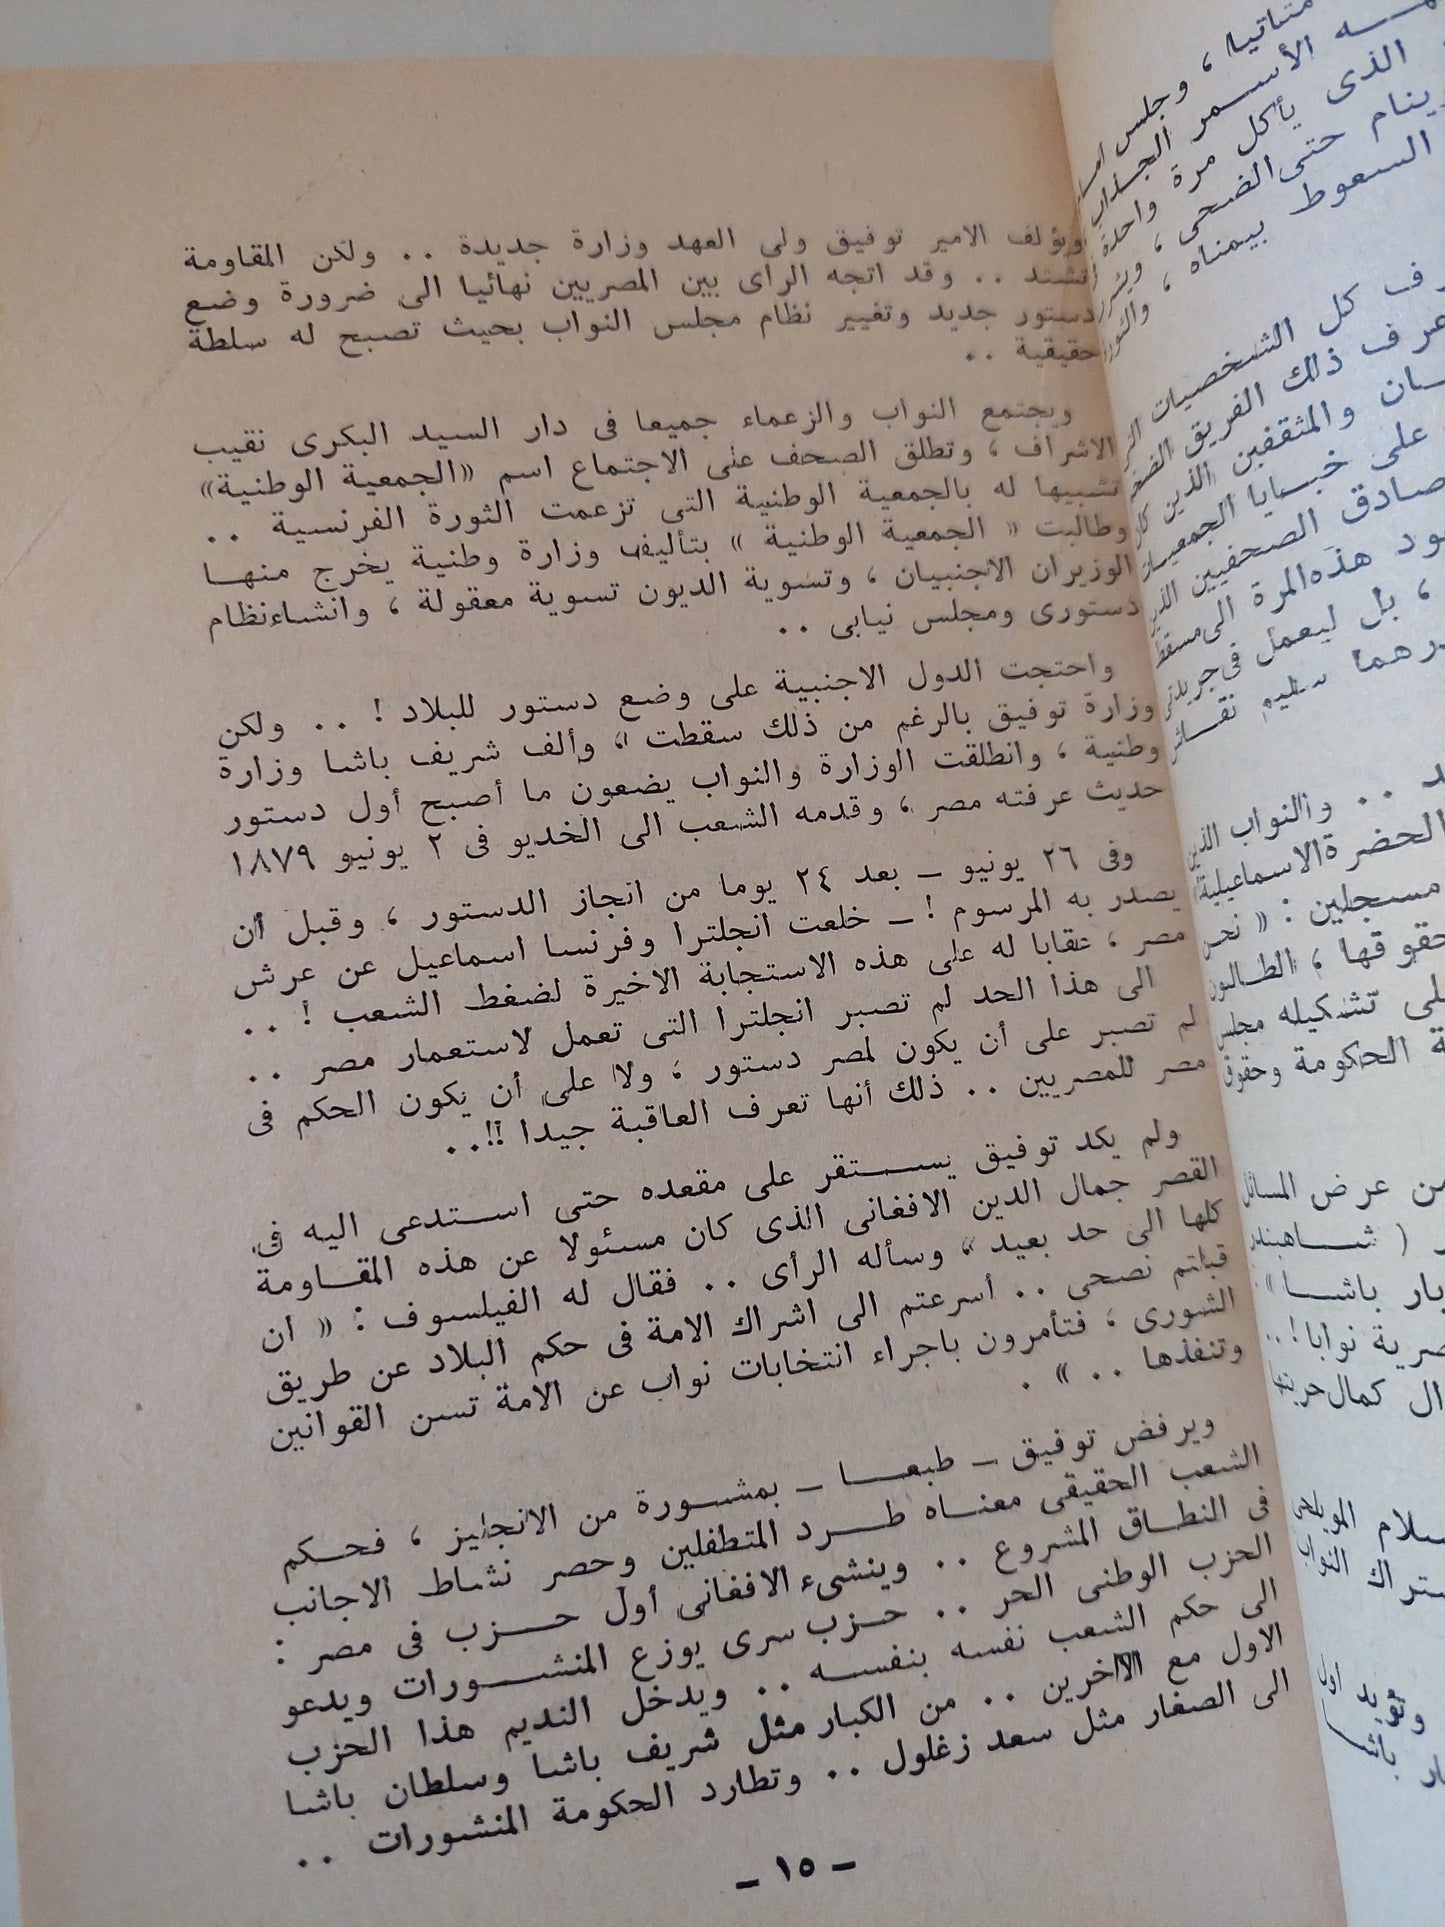 ويؤلف الامير توفيق ولى العهد وزارة جديدة . . ولكن المقاومة
تشتد . . وقد اتجه الرأى بين المصريين نهائيا الى ضرورة وضع
دستور جديد وتغيير نظام مجلس النواب بحيث تصبح له سلطة
حقيقية . .
ويجتمع النواب والزعماء جميعا فى دار السيد البكرى نقيب
الاشراف ، وتطلق الصحف على الاجتماع اسم «الجمعية الوطنية»
تشبيها له بالجمعية الوطنية التى تزعمت الثورة الفرنسية . .
وطالبت « الجمعية الوطنية » بتأليف وزارة وطنية يخرج منهــا
الوزيران الاجنبيان ، وتسوية الديون تسوية معقولة ، وانشاءنظام
دستورى ومجلس نيابى . .
واحتجت الدول الاجنبية على وضع دستور للبلاد ! . . ولكن
وزارة توفيق بالرغم من ذلك سقطت ، وألف شريف باشا وزارة
وطنية ، وانطلقت الوزارة والنواب يضعون ما أصبح أول دستور
حديث عرفته مصر ، وقدمه الشعب الى الخديو فى ٢ يونيو ١٨٧٩
وفى ٢٦ يونيو – بعد ٢٤ يوما من انجاز الدستور ، وقبل أن
يصدر به المرسوم ! – خلعت انجلترا وفرنسا اسماعيل عن عرش
مصر ، عقابا له على هذه الاستجابة الاخيرة لضغط الشعب ! . .
الى هذا الحد لم تصبر انجلترا التى تعمل لاستعمار مصر . .
لم تصبر على أن يكون لمصر دستور ، ولا على أن يكون الحكم فى
مصر للمصريين . . ذلك أنها تعرف العاقبة جيدا !! . .
ولم يكد توفيق يســتقر على مقعده حتى استدعى اليه فى
القصر جمال الدين الافغانى الذى كان مسئولا عن هذه المقاومة
كلها الى حد بعيد ، وسأله الرأى . . فقال له الفيلسوف : « ان
قبلتم نصحى . . أسرعتم الى اشراك الامة فى حكم البلاد عن طريق
الشورى ، فتأمرون باجراء انتخابات نواب عن الامة تسن القوانين
وتنفذها . . » .
ويرفض توفيق – طبعــا – بمشــورة من الانجليز ، فحــكم
الشعب الحقيقى معنــاه طــرد المتطفلين وحصر نشاط الاجانب
فى النطــاق المشروع . . وينشىء الافغانى أول حــزب فى مصر :
الحزب الوطنى الحر . . حــزب سرى يوزع المنشــورات ويدعو
الى حكم الشعب نفسه بنفســه . . ويدخل النديم هذا الحزب
الاول مع الآخرين . . من الكبار مثل شريف باشا وسلطان باشا
الى الصغار مثل سعد زغلول . . وتطارد الحكومة المنشورات . .
– ١٥ –
متاتيا ، وجلس
الأســمر الجــذاب
الذى يأكل مرة واحدة
ينام حتى الضحى ،
السعوط بيمناه ،
كل الشخصيات
ذلك الفريق
والمثقفين الذين
على خبــايا
الصحفيين
هذه المرة الى مسقط
، بل ليعمل فى
سليم
. . والنواب الذين
الحضرة الاسماعيلية
مسجلين : « نحن
حقوقها ،
تشكيله مجلس
الحكومة وحقوق
عرض المسائل
( شــاهبندر
باشــا »
نوابا ! . .
كمال حريتها
المويلحى
النواب
أول
باشــا